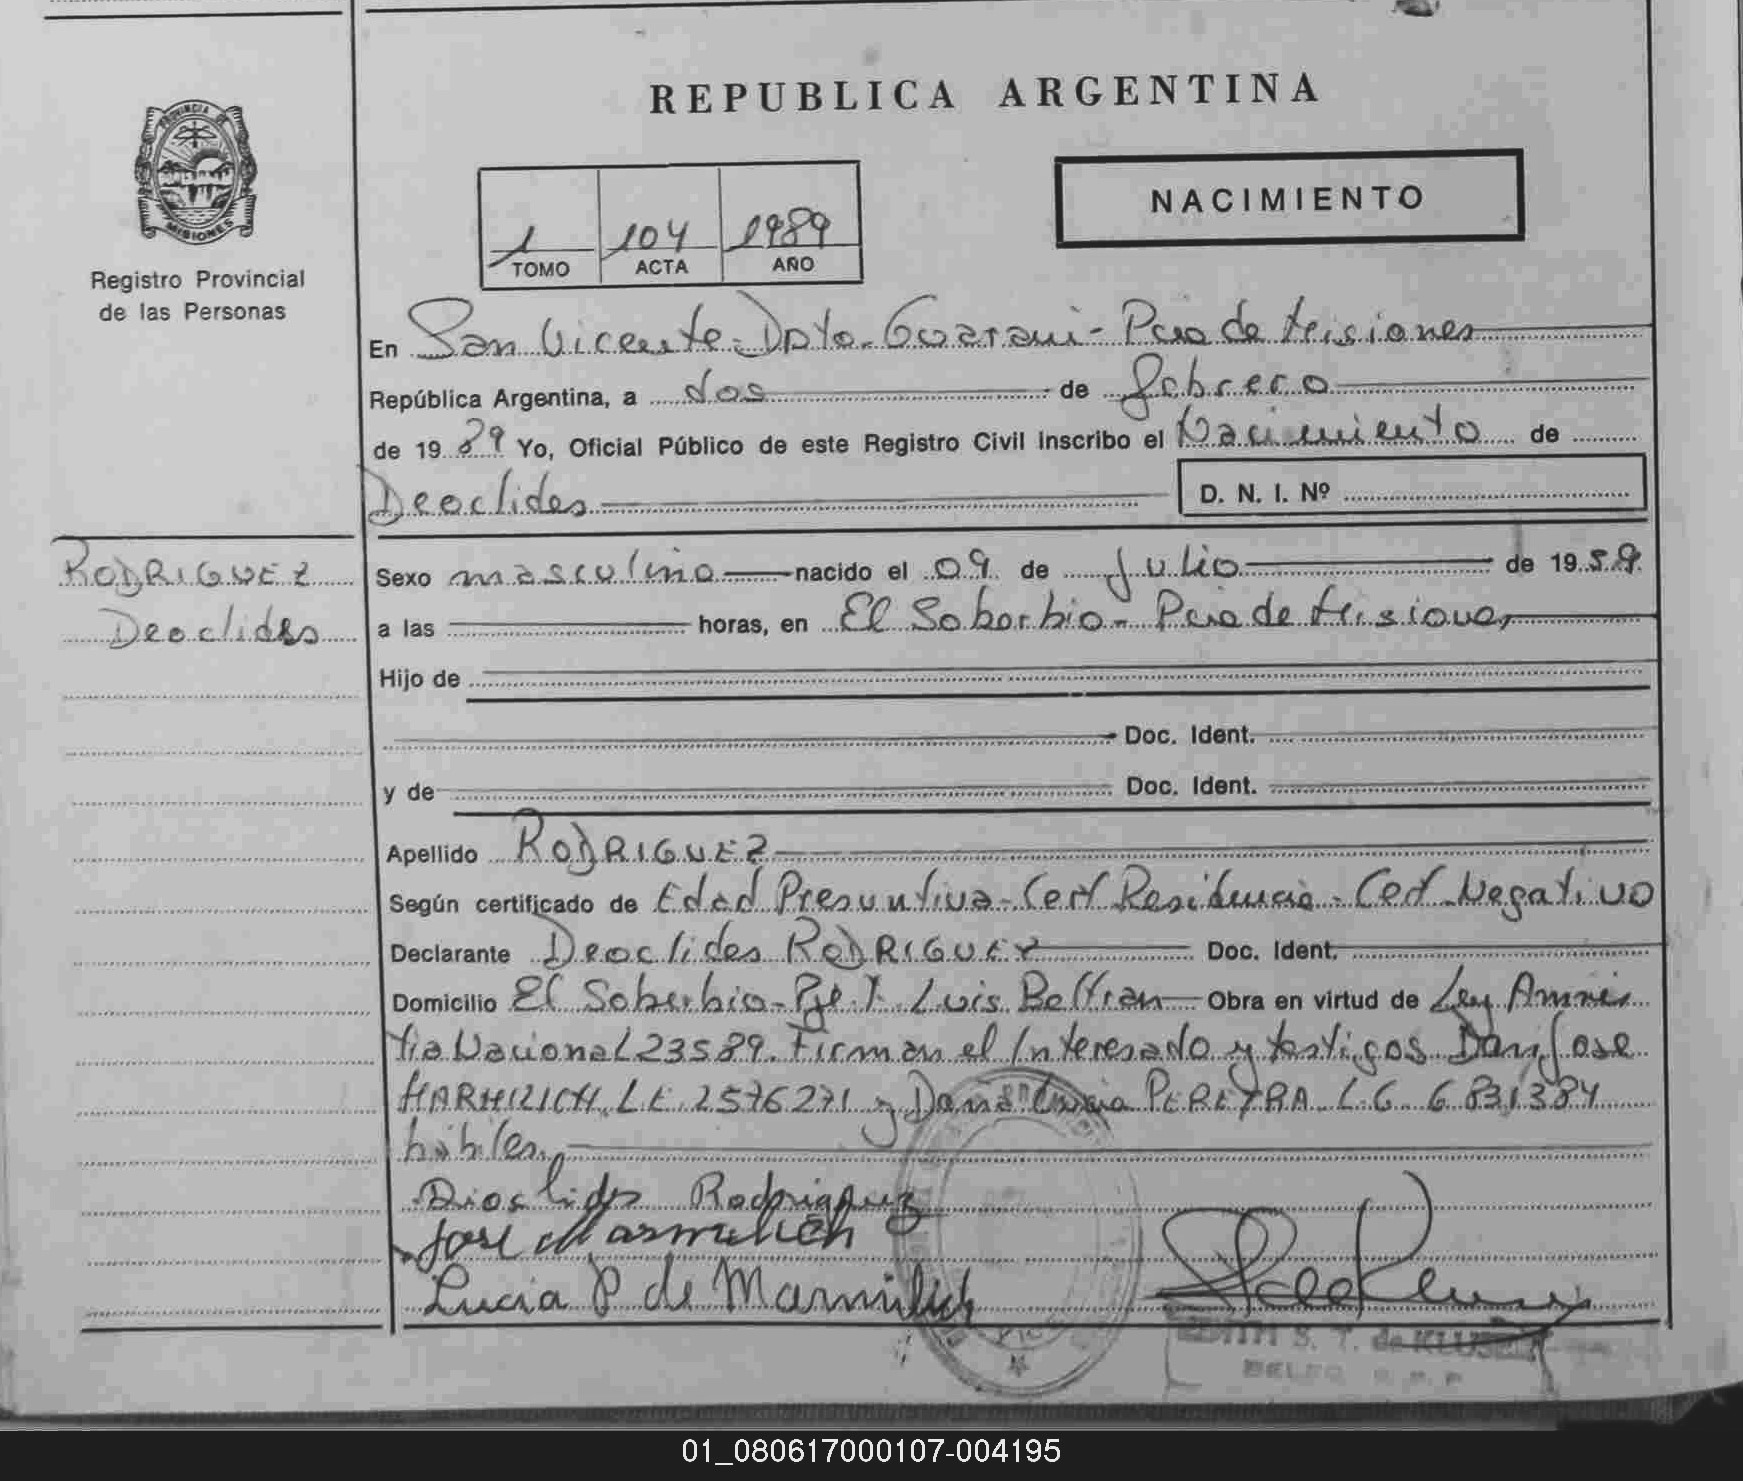 REPUBLICA ARGENTINA
PROVINCIA DE
MISIONES
Registro Provincial
de las Personas
1 104 1989
TOMO ACTA AÑO
NACIMIENTO
En San Vicente - Dpto. Guarani - Pcia de Misiones
República Argentina, a dos de febrero
de 1989 Yo, Oficial Público de este Registro Civil Inscribo el Nacimiento de
Deoclides D. N. I. Nº
RODRIGUEZ
Deoclides
Sexo masculino nacido el 09 de Julio de 1959
a las horas, en El Soberbio - Pcia de Misiones
Hijo de
Doc. Ident.
y de Doc. Ident.
Apellido RODRIGUEZ
Según certificado de Edad Presuntiva - Cert Residencia - Cert Negativo
Declarante Deoclides RODRIGUEZ Doc. Ident.
Domicilio El Soberbio - Pje. Luis Beltran Obra en virtud de Ley Amnis
tia Nacional 23589. Firman el Interesado y testigos Don Jose
LE 2576271 y Doña Lucia PEREYRA L.C 6831384
hábiles.
Dioslides Rodriguez
Jose Marmilich
Lucia P de Marmilich
S. T. de
01_080617000107-004195